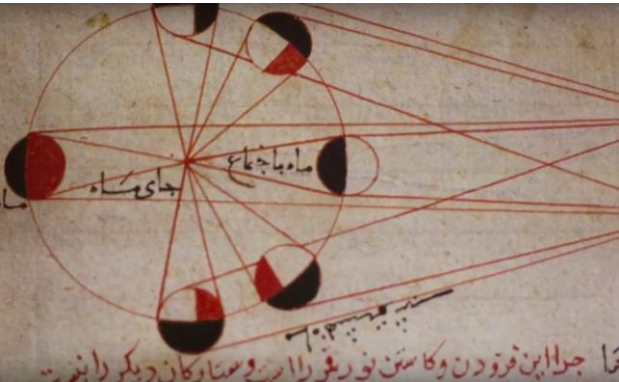 ماه باجتماع
جای ماه
جرا این فزودن وکاستن نور قمر را است وستارکان دیکر را نیست